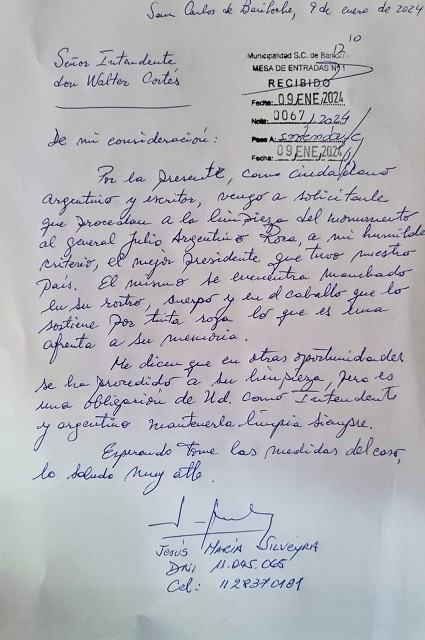 San Carlos de Bariloche, 9 de enero de 2024
Señor Intendente
don Walter Cortés
12 10
Municipalidad S.C. de Bariloche
MESA DE ENTRADAS Nº1
RECIBIDO
Fecha: 09 ENE 2024
Nota: 0067 / 2024
Pase A: Intendencia
Fecha: 09 ENE 2024
De mi consideración:
Por la presente, como ciudadano
argentino y escritor, vengo a solicitarle
que procedan a la limpieza del monumento
al general Julio Argentino Roca, a mi humilde
criterio, el mejor Presidente que tuvo nuestro
País. El mismo se encuentra manchado
en su rostro, cuerpo y en el caballo que lo
sostiene por tinta roja lo que es una
afrenta a su memoria.
Me dicen que en otras oportunidades
se ha procedido a su limpieza, pero es
una obligación de Ud. como Intendente
y argentino mantenerla limpia siempre.
Esperando tome las medidas del caso,
lo saludo muy atte.
JESÚS MARÍA SILVEYRA
DNI 11.045.065
Cel: 1128370181